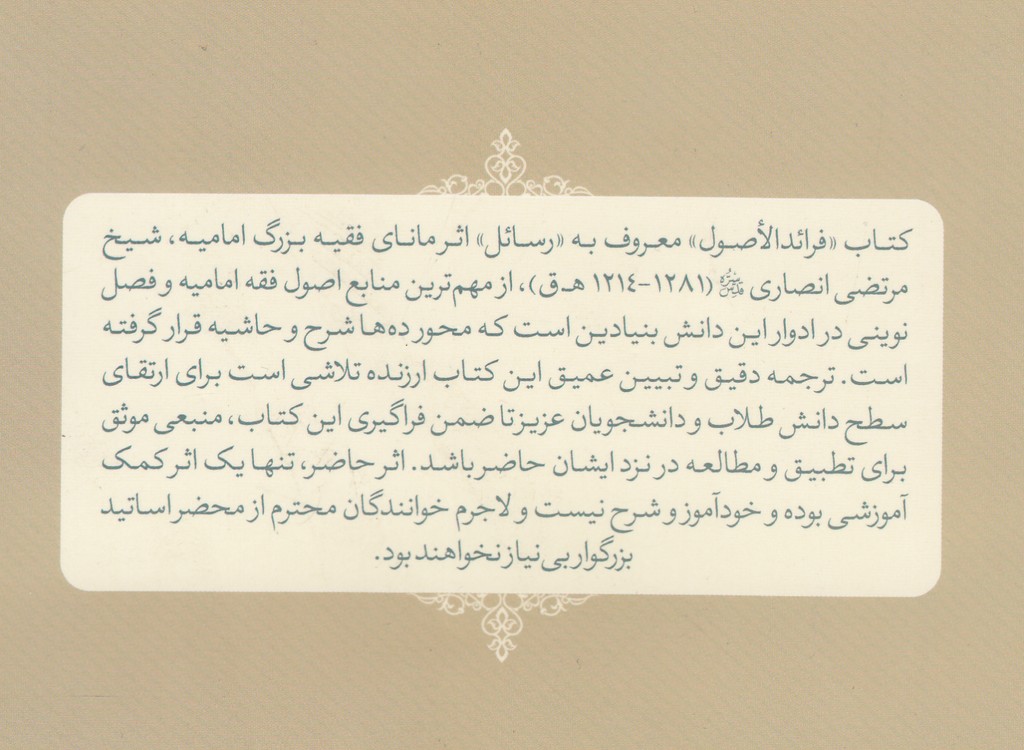 کتاب «فرائدالأصول» معروف به «رسائل» اثر مانای فقیه بزرگ امامیه، شیخ
مرتضی انصاری قدس‌سره (۱۲۸۱-۱۲۱٤ هـ.ق)، از مهم‌ترین منابع اصول فقه امامیه و فصل
نوینی در ادوار این دانش بنیادین است که محور ده‌ها شرح و حاشیه قرار گرفته
است. ترجمه دقیق و تبیین عمیق این کتاب ارزنده تلاشی است برای ارتقای
سطح دانش طلاب و دانشجویان عزیز تا ضمن فراگیری این کتاب، منبعی موثق
برای تطبیق و مطالعه در نزد ایشان حاضر باشد. اثر حاضر، تنها یک اثر کمک
آموزشی بوده و خودآموز و شرح نیست و لاجرم خوانندگان محترم از محضر اساتید
بزرگوار بی‌نیاز نخواهند بود.